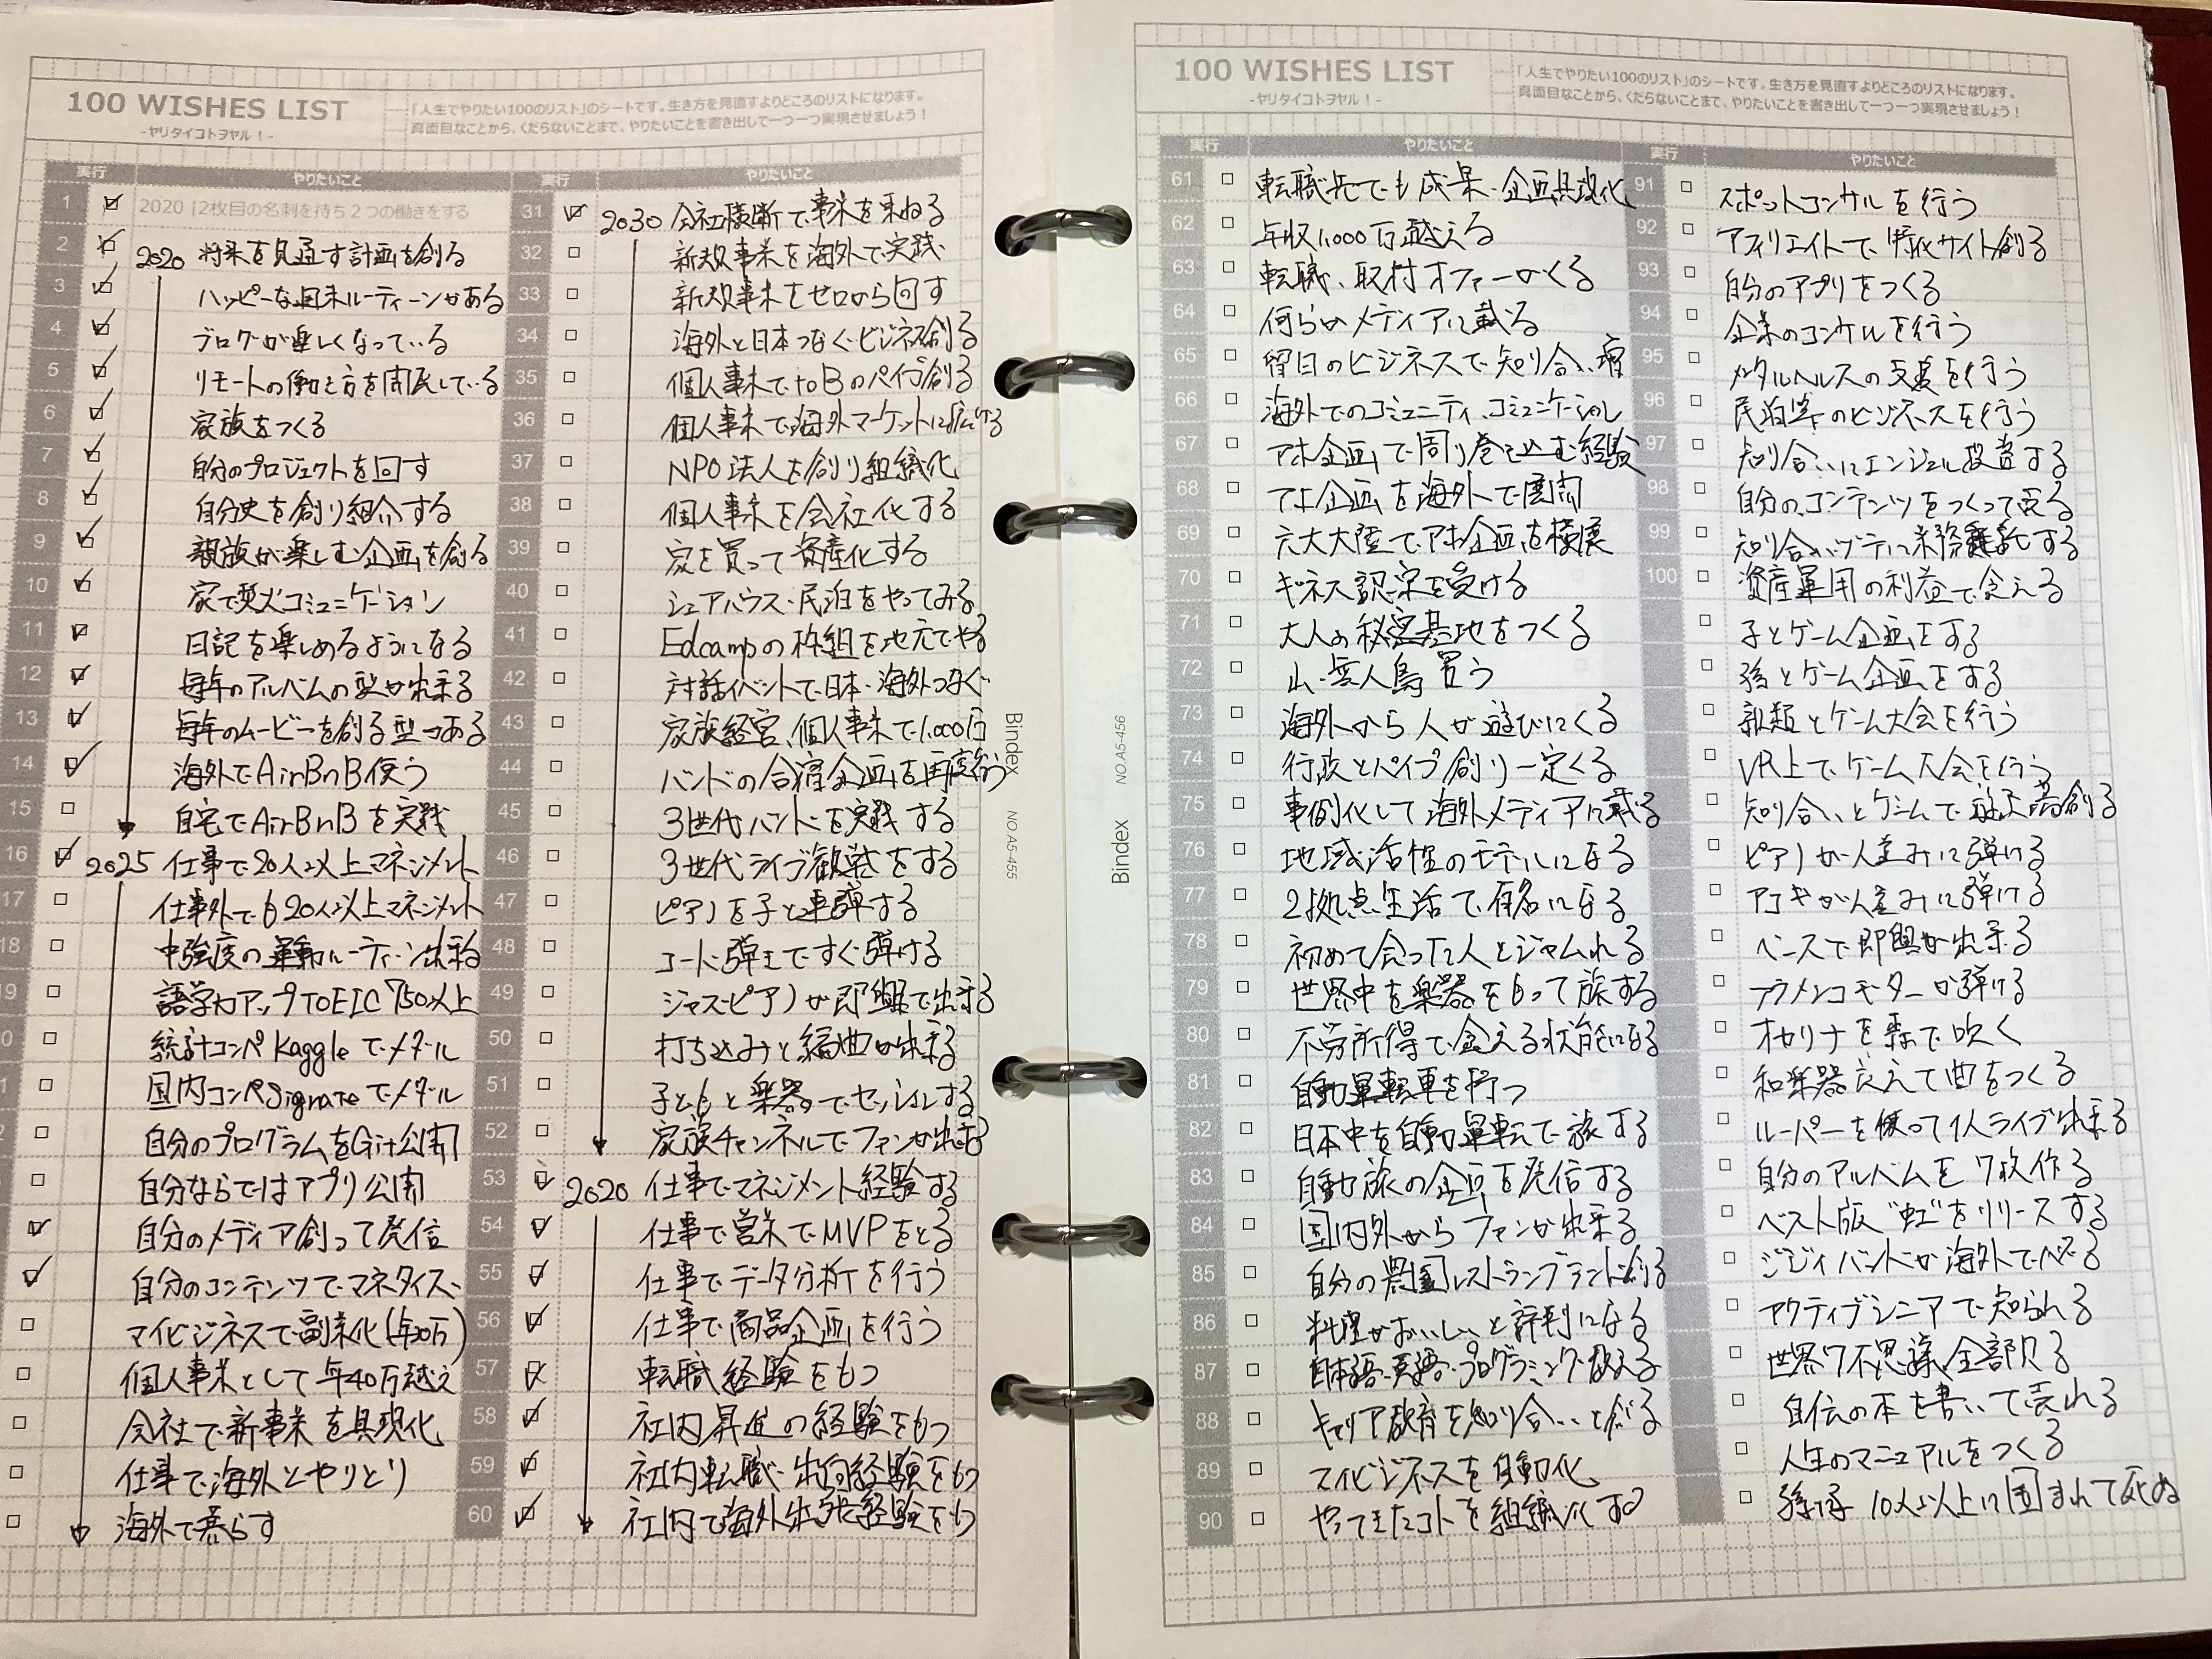 100 WISHES LIST
-ヤリタイコトヲヤル！-
「人生でやりたい100のリスト」のシートです。生き方を見直すよりどころのリストになります。
真面目なことから、くだらないことまで、やりたいことを書き出して一つ一つ実現させましょう！
実行 やりたいこと
1 2020 |2枚目の名刺を持ち2つの働きをする
2 2020 将来を見通す計画を創る
3 ハッピーな週末ルーティーンがある
4 ブログが楽しくなっている
5 リモートの働き方を開拓している
6 家族をつくる
7 自分のプロジェクトを回す
8 自分史を創り紹介する
9 親族が楽しむ企画を創る
10 家で焚火コミュニケーション
11 日記を楽しめるようになる
12 毎年のアルバムの型が出来る
13 毎年のムービーを創る型がある
14 海外でAirBnB使う
15 自宅でAirBnBを実践
16 2025 仕事で20人以上マネンジメント
17 仕事外でも20人以上マネンジメント
18 中強度の運動ルーティーン出来る
19 語学力アップTOEIC750以上
0 統計コンペKaggleでメダル
1 国内コンペSignateでメダル
2 自分のプログラムをGit公開
自分ならではアプリ公開
自分のメディア創って発信
自分のコンテンツでマネタイズ
マイビジネスで副業化(年20万)
個人事業として年40万越え
会社で新事業を具現化
仕事で海外とやりとり
海外で暮らす
実行 やりたいこと
31 2030 会社横断で事業を束ねる
32 新規事業を海外で実践
33 新規事業をゼロから回す
34 海外と日本つなぐビジネス創る
35 個人事業でtoBのパイプ創る
36 個人事業で海外マーケットに広げる
37 NPO法人を創り組織化
38 個人事業を会社化する
39 家を買って資産化する
40 シェアハウス・民泊をやってみる
41 Edcampの枠組を地元でやる
42 対話イベントで日本・海外つなぐ
43 家族経営、個人事業で1,000万
44 バンドの合宿企画を再度行う
45 3世代バンドを実践する
46 3世代ライブ観戦をする
47 ピアノを子と連弾する
48 コード弾きですぐ弾ける
49 ジャズピアノが即興で出来る
50 打ち込みと編曲が出来る
51 子どもと楽器でセッションする
52 家族チャンネルでファンが出来る
53 2020 仕事でマネンジメント経験する
54 仕事で営業でMVPをとる
55 仕事でデータ分析を行う
56 仕事で商品企画を行う
57 転職経験をもつ
58 社内昇進の経験をもつ
59 社内転職・出向経験をもつ
60 社内で海外出張経験をもつ
Bindex NO.A5-455
Bindex NO.A5-456
100 WISHES LIST
-ヤリタイコトヲヤル！-
「人生でやりたい100のリスト」のシートです。生き方を見直すよりどころのリストになります。
真面目なことから、くだらないことまで、やりたいことを書き出して一つ一つ実現させましょう！
実行 やりたいこと
61 転職先でも成果・企画具現化
62 年収1,000万越える
63 転職、取材オファーがくる
64 何らかメディアに載る
65 曜日のビジネスで知り合い増
66 海外でのコミュニティ、コミュニケーション
67 アホ企画で周り巻き込む経験
68 アホ企画を海外で展開
69 六大大陸でアホ企画を横展
70 ギネス認定を受ける
71 大人の秘密基地をつくる
72 山・無人島買う
73 海外から人が遊びにくる
74 行政とパイプ創り一定くる
75 事例化して海外メディアに載る
76 地域活性のモデルになる
77 2拠点生活で有名になる
78 初めて会った人とジャムれる
79 世界中を楽器をもって旅する
80 不労所得で食える状態になる
81 自動運転車を持つ
82 日本中を自動運転で旅する
83 自動旅の企画を発信する
84 国内外からファンが出来る
85 自分の農園レストランブランド創る
86 料理がおいしいと評判になる
87 日本語・英語・プログラミング教える
88 キャリア教育を知り合いと創る
89 マイビジネスを自動化
90 やってきたコトを組織化する
実行 やりたいこと
91 スポットコンサルを行う
92 アフィリエイトで特化サイト創る
93 自分のアプリをつくる
94 企業のコンサルを行う
95 メンタルヘルスの支援を行う
96 民泊等のビジネスを行う
97 知り合いにエンジェル投資する
98 自分のコンテンツをつくって売る
99 知り合いづてに業務委託する
100 資産運用の利益で食える
子とゲーム企画をする
孫とゲーム企画をする
親類とゲーム大会を行う
VR上でゲーム大会を行う
知り合いとゲームで遊ぶ場創る
ピアノが人並みに弾ける
アコギが人並みに弾ける
ベースで即興が出来る
フラメンコギターが弾ける
オカリナを森で吹く
和楽器交えて曲をつくる
ルーパーを使って1人ライブ出来る
自分のアルバムを7枚作る
ベスト版"虹"をリリースする
ジジィバンドが海外でバズる
アクティブシニアで知られる
世界7不思議全部見る
自伝の本を書いて売れる
人生のマニュアルをつくる
孫子10人以上に囲まれて死ぬ